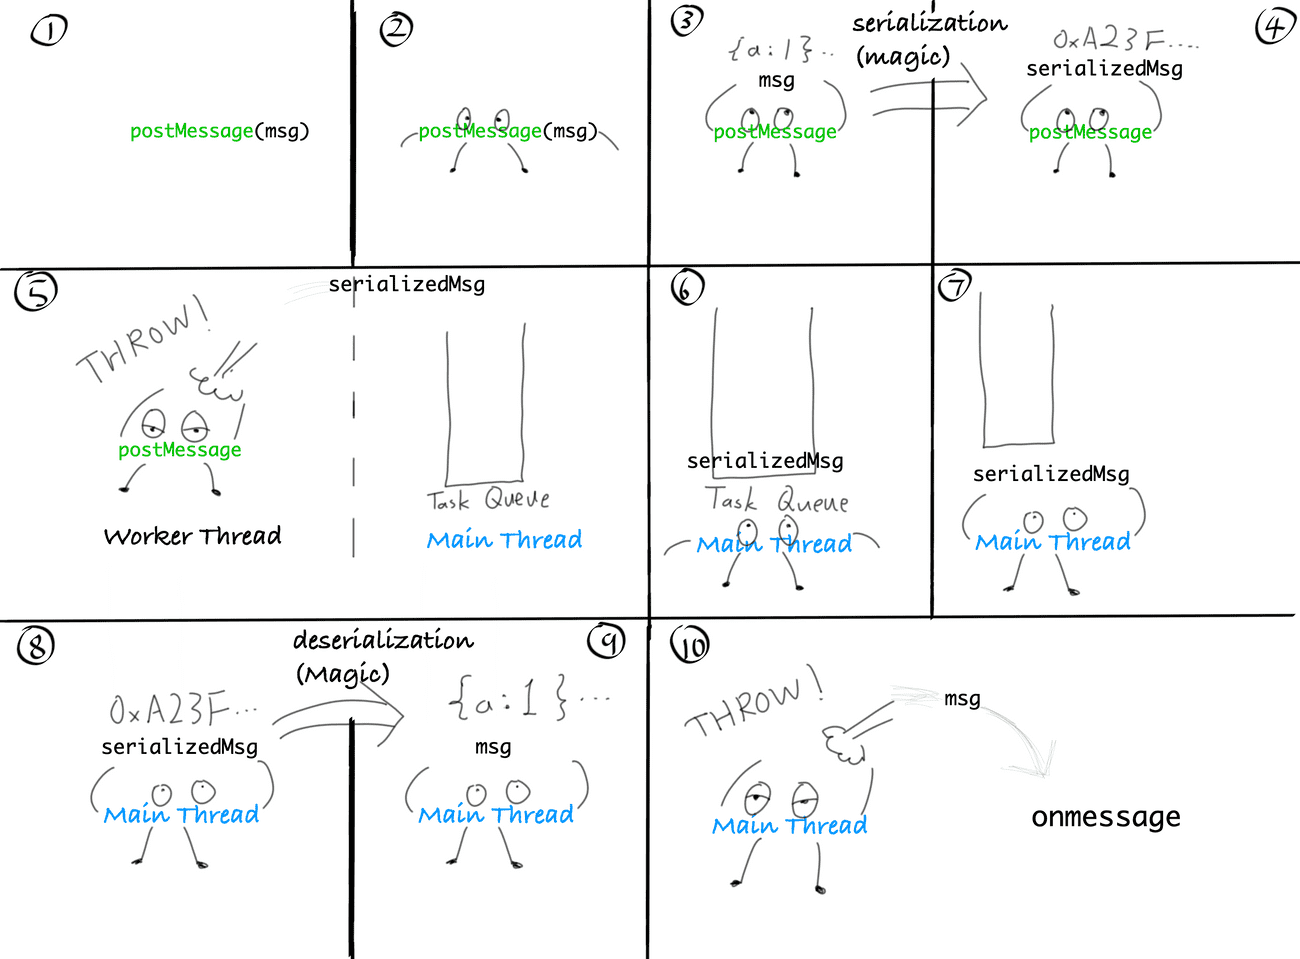 1
postMessage(msg)
2
postMessage(msg)
3
{a:1}..
msg
postMessage
serialization
(magic)
4
0xA23F....
serializedMsg
postMessage
5
THROW!
postMessage
Worker Thread
serializedMsg
Task Queue
Main Thread
6
serializedMsg
Task Queue
Main Thread
7
serializedMsg
Main Thread
8
0xA23F...
serializedMsg
Main Thread
deserialization
(Magic)
9
{a:1}...
msg
Main Thread
10
THROW!
Main Thread
msg
onmessage